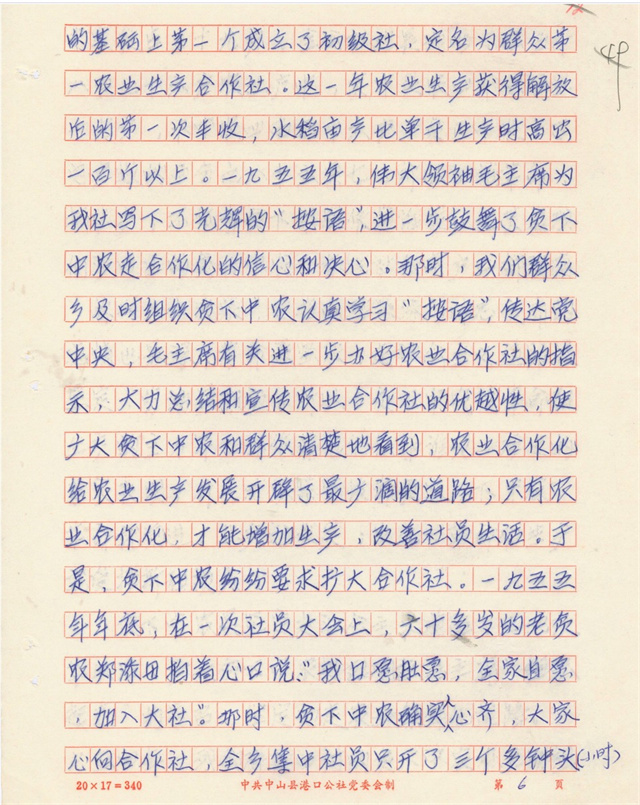 49
的基础上第一个成立了初级社，定名为群众第
一农业生产合作社。这一年农业生产获得解放
后的第一次丰收，水稻亩产比单干生产时高出
一百斤以上。一九五五年，伟大领袖毛主席为
我社写下了光辉的“按语”，进一步鼓舞了贫下
中农走合作化的信心和决心。那时，我们群众
乡及时组织贫下中农认真学习“按语”，传达党
中央，毛主席有关进一步办好农业合作社的指
示，大力总结和宣传农业合作社的优越性，使
广大贫下中农和群众清楚地看到，农业合作化
给农业生产发展开辟了最广阔的道路；只有农
业合作化，才能增加生产，改善社员生活。于
是，贫下中农纷纷要求扩大合作社。一九五五
年年底，在一次社员大会上，六十多岁的老贫
农郑添田拍着心口说：“我口愿肚愿，全家自愿
，加入大社”。那时，贫下中农确实人人心齐，大家
心向合作社，全乡集中社员只开了三个多钟头（小时）
20×17=340 中共中山县港口公社党委会制 第 6 頁